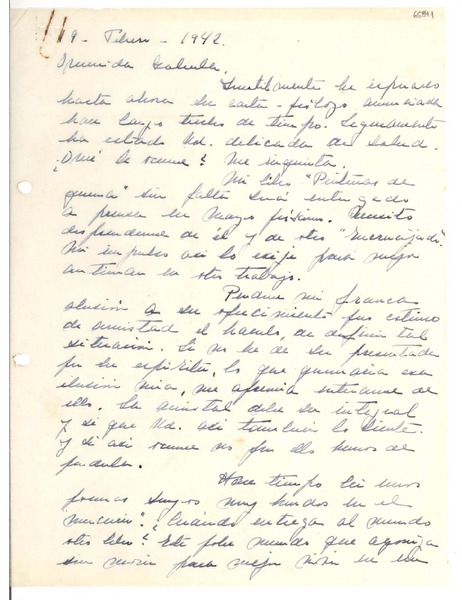 65841
19 - Febrero - 1942.
Querida Gabriela:
Inutilmente he esperado
hasta ahora su carta - prólogo anunciada
hace largo trecho de tiempo. Seguramente
ha estado Ud. delicada de salud.
¿Qué le ocurre? Me inquieta.
Mi libro "Pinturas de
guerra" sin falta será entregado
a prensa en Mayo próximo. Necesito
desprenderme de él y de otro "Encrucijada".
Mi impulso así lo exige para mejor
continuar en otro trabajo.
Perdone mi franca
alusión a su ofrecimiento pues estimo
de amistad el hacerlo, de definir tal
situación. Si no he de ser presentada
por su espíritu, lo que quemaría esa
ilusión mía, me apenaría enterarme de
ello. La amistad debe ser integral
y sé que Ud. así también lo siente
y si así ocurre no por ello hemos de
perderla.
Hace tiempo leí unos
poemas suyos muy lindos en el
"Mercurio". ¿Cuándo entrega al mundo
otro libro? Este pobre mundo que agoniza
sin morir para mejor vivir en un